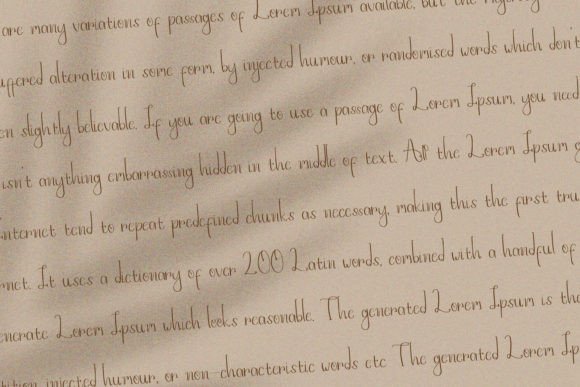 are many variations of passages of Lorem Ipsum available, but
alteration in some form, by injected humour, or randomised words which don't
slightly believable. If you are going to use a passage of Lorem Ipsum, you need
isn't anything embarrassing hidden in the middle of text. All the Lorem Ipsum
tend to repeat predefined chunks as necessary, making this the first
It uses a dictionary of over 200 Latin words, combined with a handful of
Lorem Ipsum which looks reasonable. The generated Lorem Ipsum is
injected humour, or non-characteristic words etc The generated Lorem